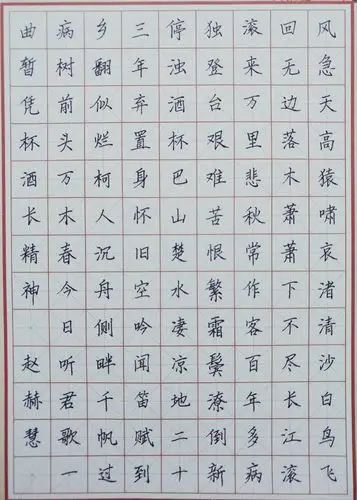 风急天高猿啸哀渚清沙白鸟飞
回无边落木萧萧下不尽长江滚
滚来万里悲秋常作客百年多病
独登台艰难苦恨繁霜鬓潦倒新
停浊酒杯巴山楚水凄凉地二十
三年弃置身怀旧空吟闻笛赋到
乡翻似烂柯人沉舟侧畔千帆过
病树前头万木春今日听君歌一
曲暂凭杯酒长精神 赵赫慧